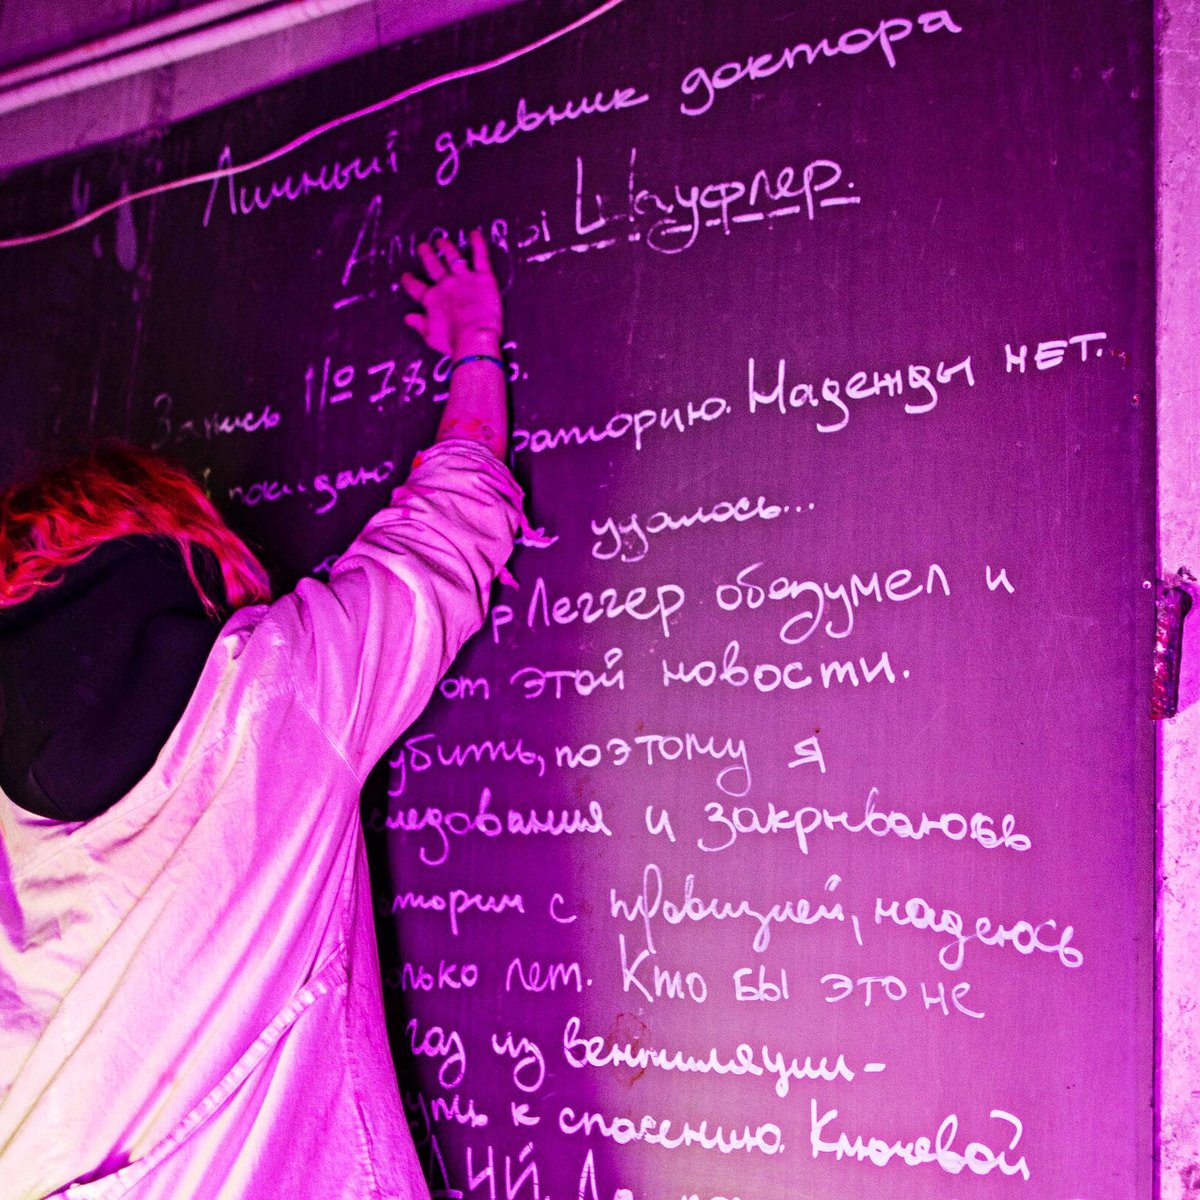 Личный дневник доктора
Шауфлер.
Запись №
покидаю раторию. Надежды нет.
удалось...
р Леггер обезумел и
от этой новости.
убить, поэтому я
следования и закрываюсь
атории с провизией, надеюсь
олько лет. Кто бы это не
газ из вентиляции-
уть к спасению. Ключевой